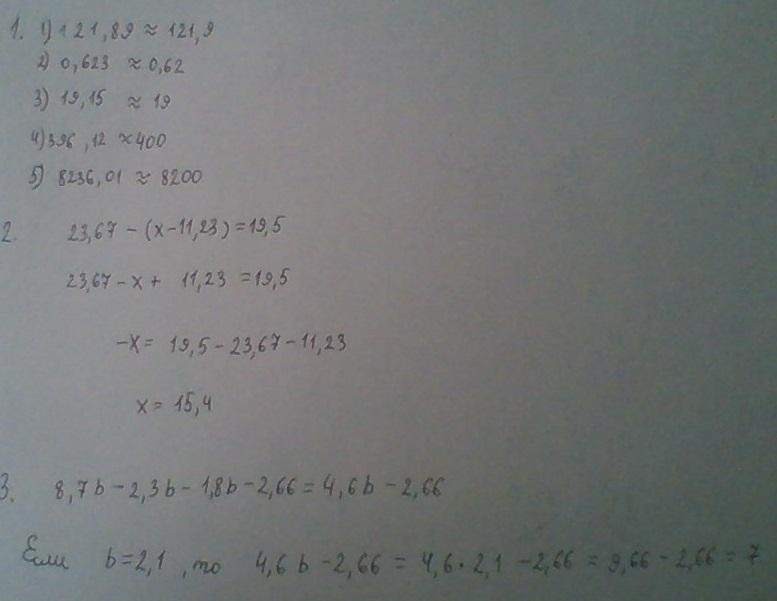 1. 1) 121,89 ≈ 121,9
2) 0,623 ≈ 0,62
3) 19,15 ≈ 19
4) 396,12 ≈ 400
5) 8236,01 ≈ 8200
2. 23,67 - (x-11,23) = 19,5
23,67 - x + 11,23 = 19,5
-x = 19,5 - 23,67 - 11,23
x = 15,4
3. 8,7b - 2,3b - 1,8b - 2,66 = 4,6b - 2,66
Если b=2,1, то 4,6b - 2,66 = 4,6·2,1 - 2,66 = 9,66 - 2,66 = 7